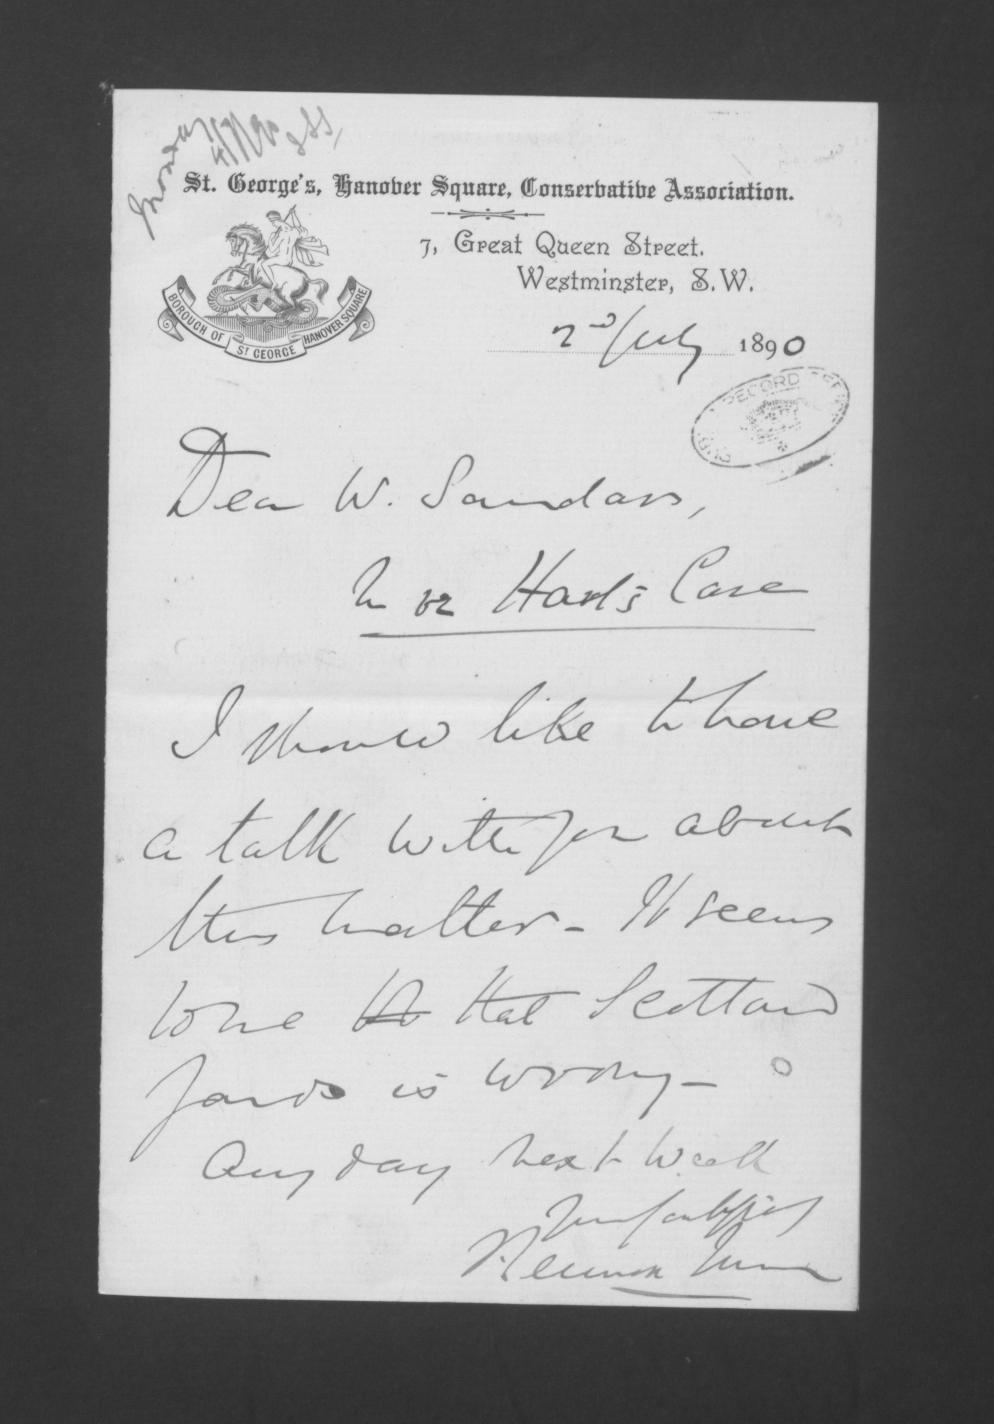 Monday
St. George's, Hanover Square, Conservative Association.
7, Great Queen Street,
Westminster, S.W.
BOROUGH OF ST GEORGE HANOVER SQUARE
2nd July 1890
RECORD
Dear W. Sandars,
In re Hart's Case
I should like to have
a talk with you about
this matter - It seems
to me to that Scotland
Yard is wrong -
Any day next week
Yours faithfully